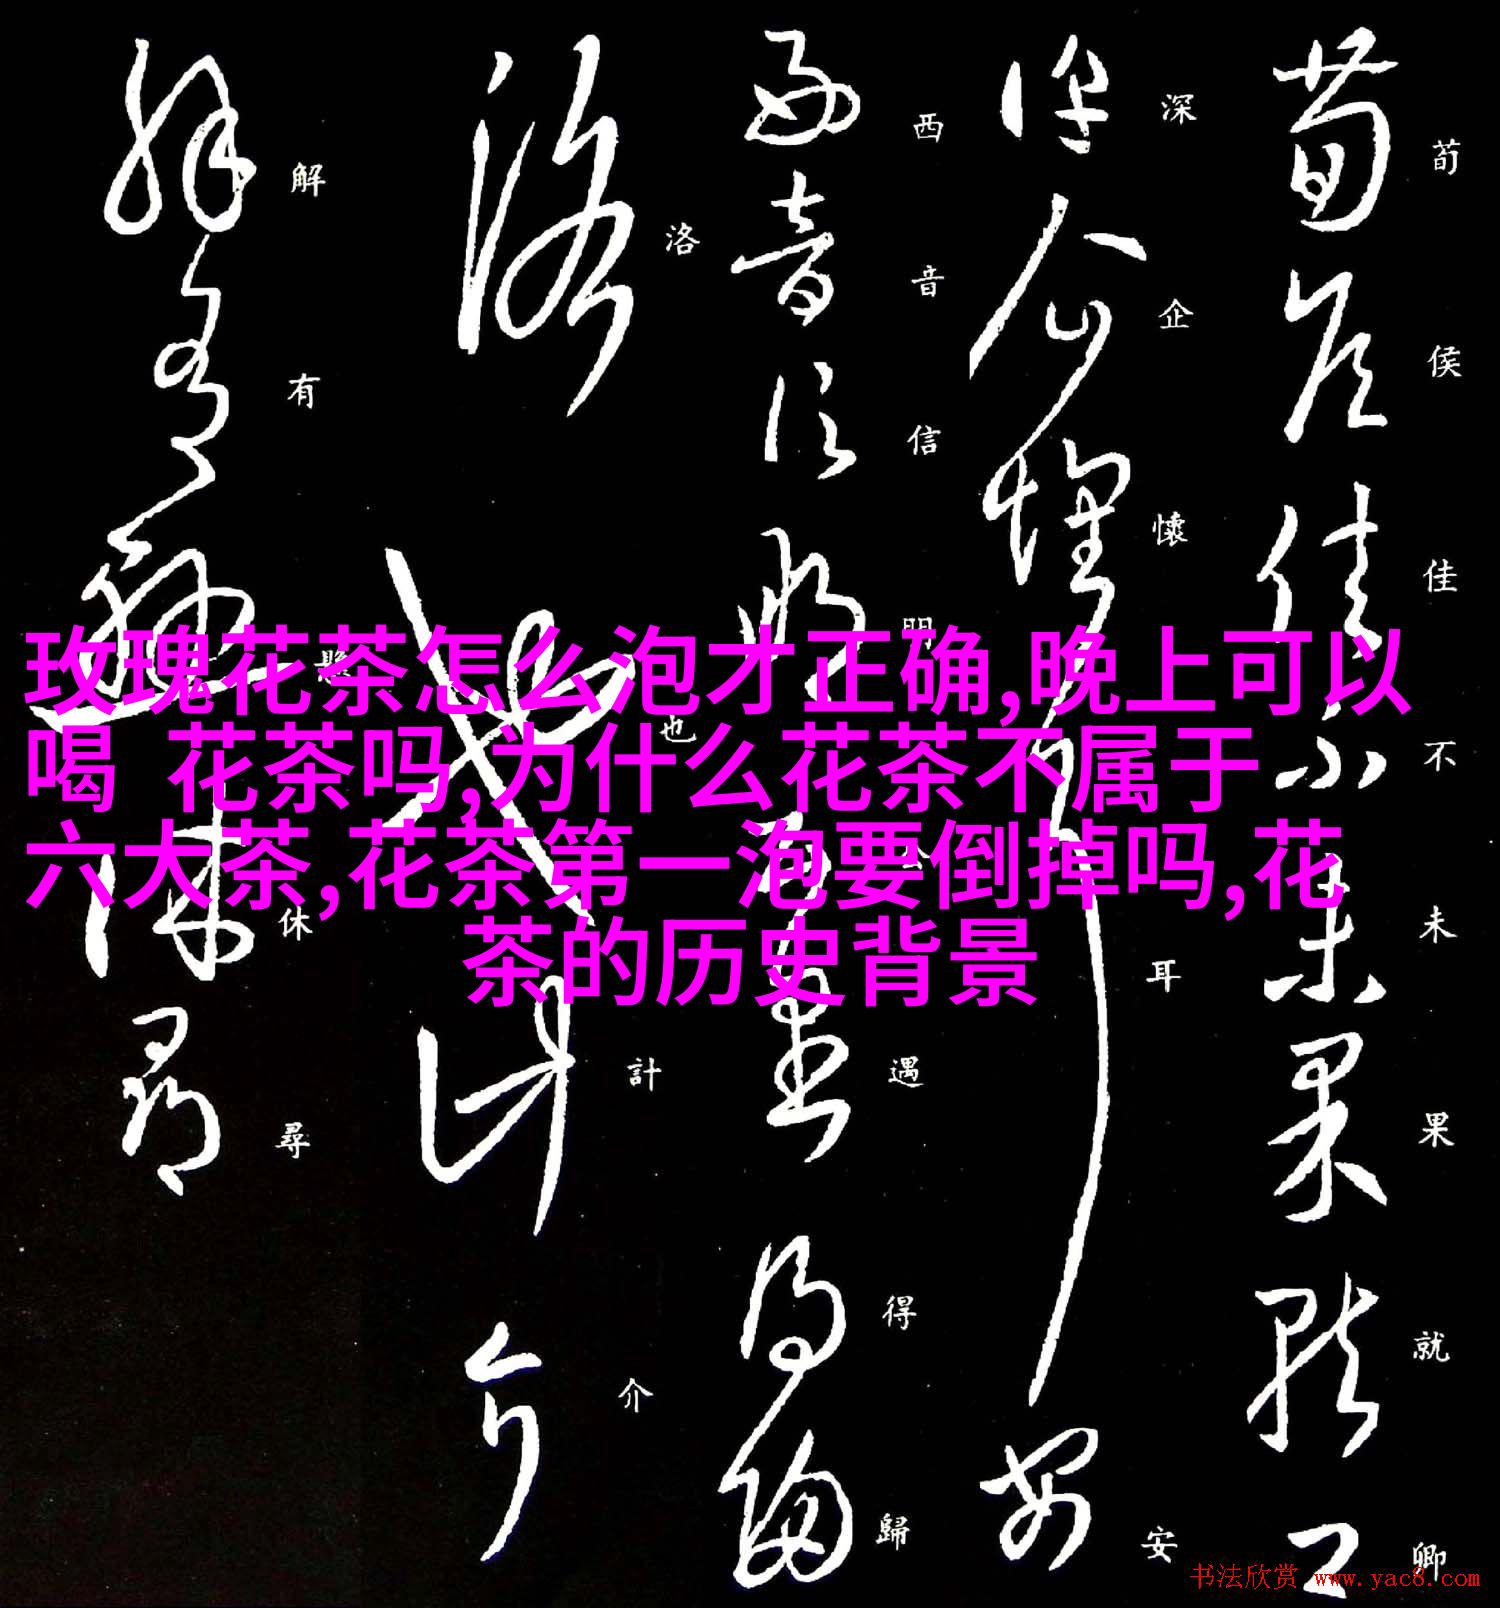 荀侯佳不未果就卿
深企懷耳安
西音信明公遇得歸
洛也計介
解有懸休尋
玫瑰花茶怎么泡才正确,晚上可以
喝 花茶吗,为什么花茶不属于
六大茶,花茶第一泡要倒掉吗,花
茶的历史背景
书法欣赏 www.yac8.com